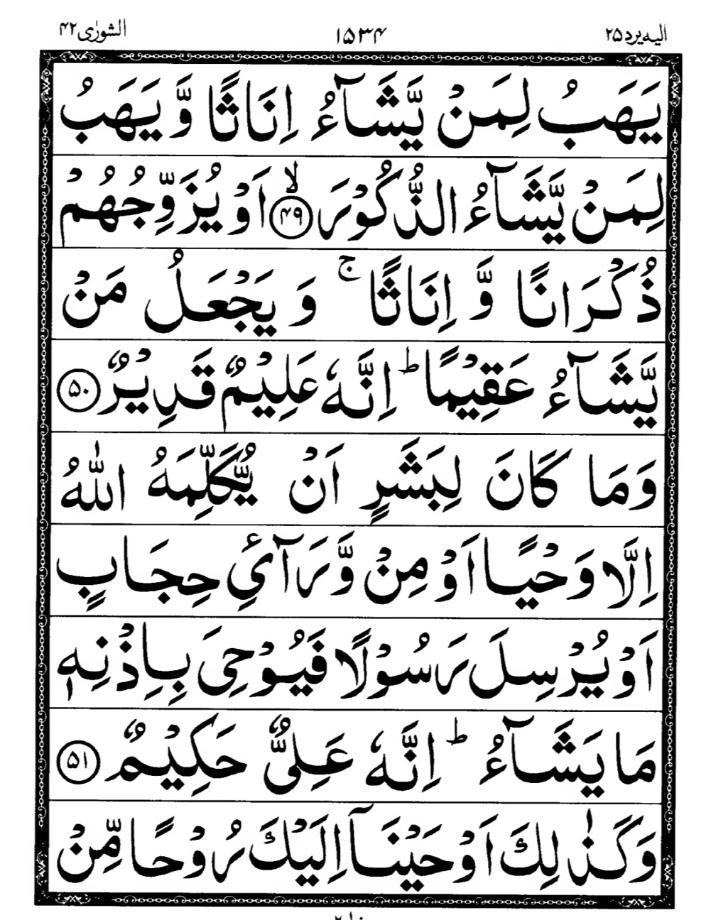 الیه یرد ۲۵ ۱۵۳۴ الشورٰی ۴۲
یَهَبُ لِمَنْ یَّشَآءُ اِنَاثًا وَّ یَهَبُ
لِمَنْ یَّشَآءُ الذُّكُوْرَ ۙ﴿۴۹﴾ اَوْ یُزَوِّجُهُمْ
ذُكْرَانًا وَّ اِنَاثًا ۚ وَ یَجْعَلُ مَنْ
یَّشَآءُ عَقِیْمًا ؕ اِنَّهٗ عَلِیْمٌ قَدِیْرٌ ﴿۵۰﴾
وَمَا كَانَ لِبَشَرٍ اَنْ یُّكَلِّمَهُ اللّٰهُ
اِلَّا وَحْیًا اَوْ مِنْ وَّرَآئِ حِجَابٍ
اَوْ یُرْسِلَ رَسُوْلًا فَیُوْحِیَ بِاِذْنِهٖ
مَا یَشَآءُ ؕ اِنَّهٗ عَلِیٌّ حَكِیْمٌ ﴿۵۱﴾
وَكَذٰلِكَ اَوْحَیْنَاۤ اِلَیْكَ رُوْحًا مِّنْ